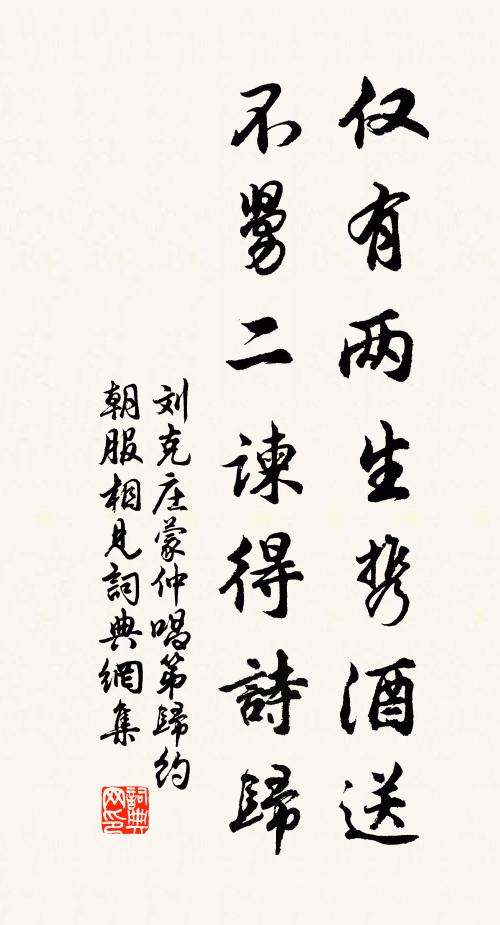 仅有两生携酒送
不勞二諫得詩歸
刘克庄蒙仲唱第歸约
朝服相見詞典網集
詞典网印